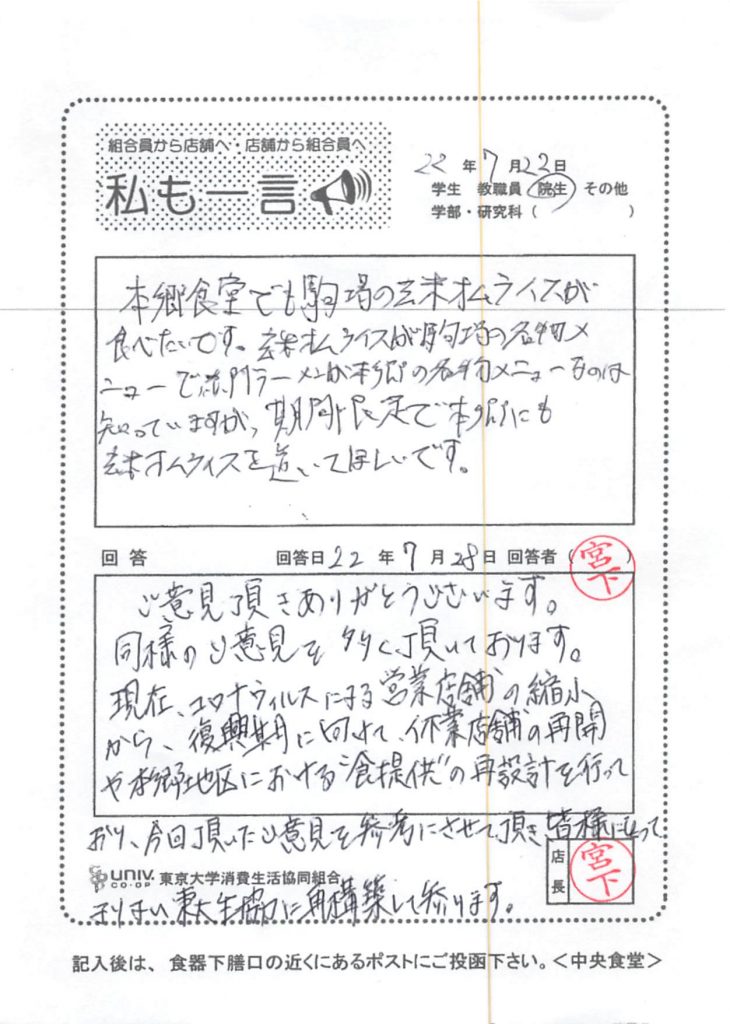 組合員から店舗へ・店舗から組合員へ
私も一言
22年7月22日
学生 教職員 院生 その他
学部・研究科( )
本郷食堂でも駒場の玄米オムライスが
食べたいです。玄米オムライスが駒場の名物メ
ニューで赤門ラーメンが本郷の名物メニューなのは
知っていますが、期間限定で本郷にも
玄米オムライスを置いてほしいです。
回答 回答日22年7月28日 回答者(宮下)
ご意見頂きありがとうございます。
同様のご意見を多く頂いております。
現在、コロナウィルスによる営業店舗の縮小
から、復興期に向けて、休業店舗の再開
や本郷地区における"食提供"の再設計を行って
おり、今回頂いたご意見を参考にさせて頂き皆様にとって
店長 宮下
UNIV. CO-OP 東京大学消費生活協同組合
よりよい東大生協に再構築して参ります。
記入後は、食器下膳口の近くにあるポストにご投函下さい。<中央食堂>